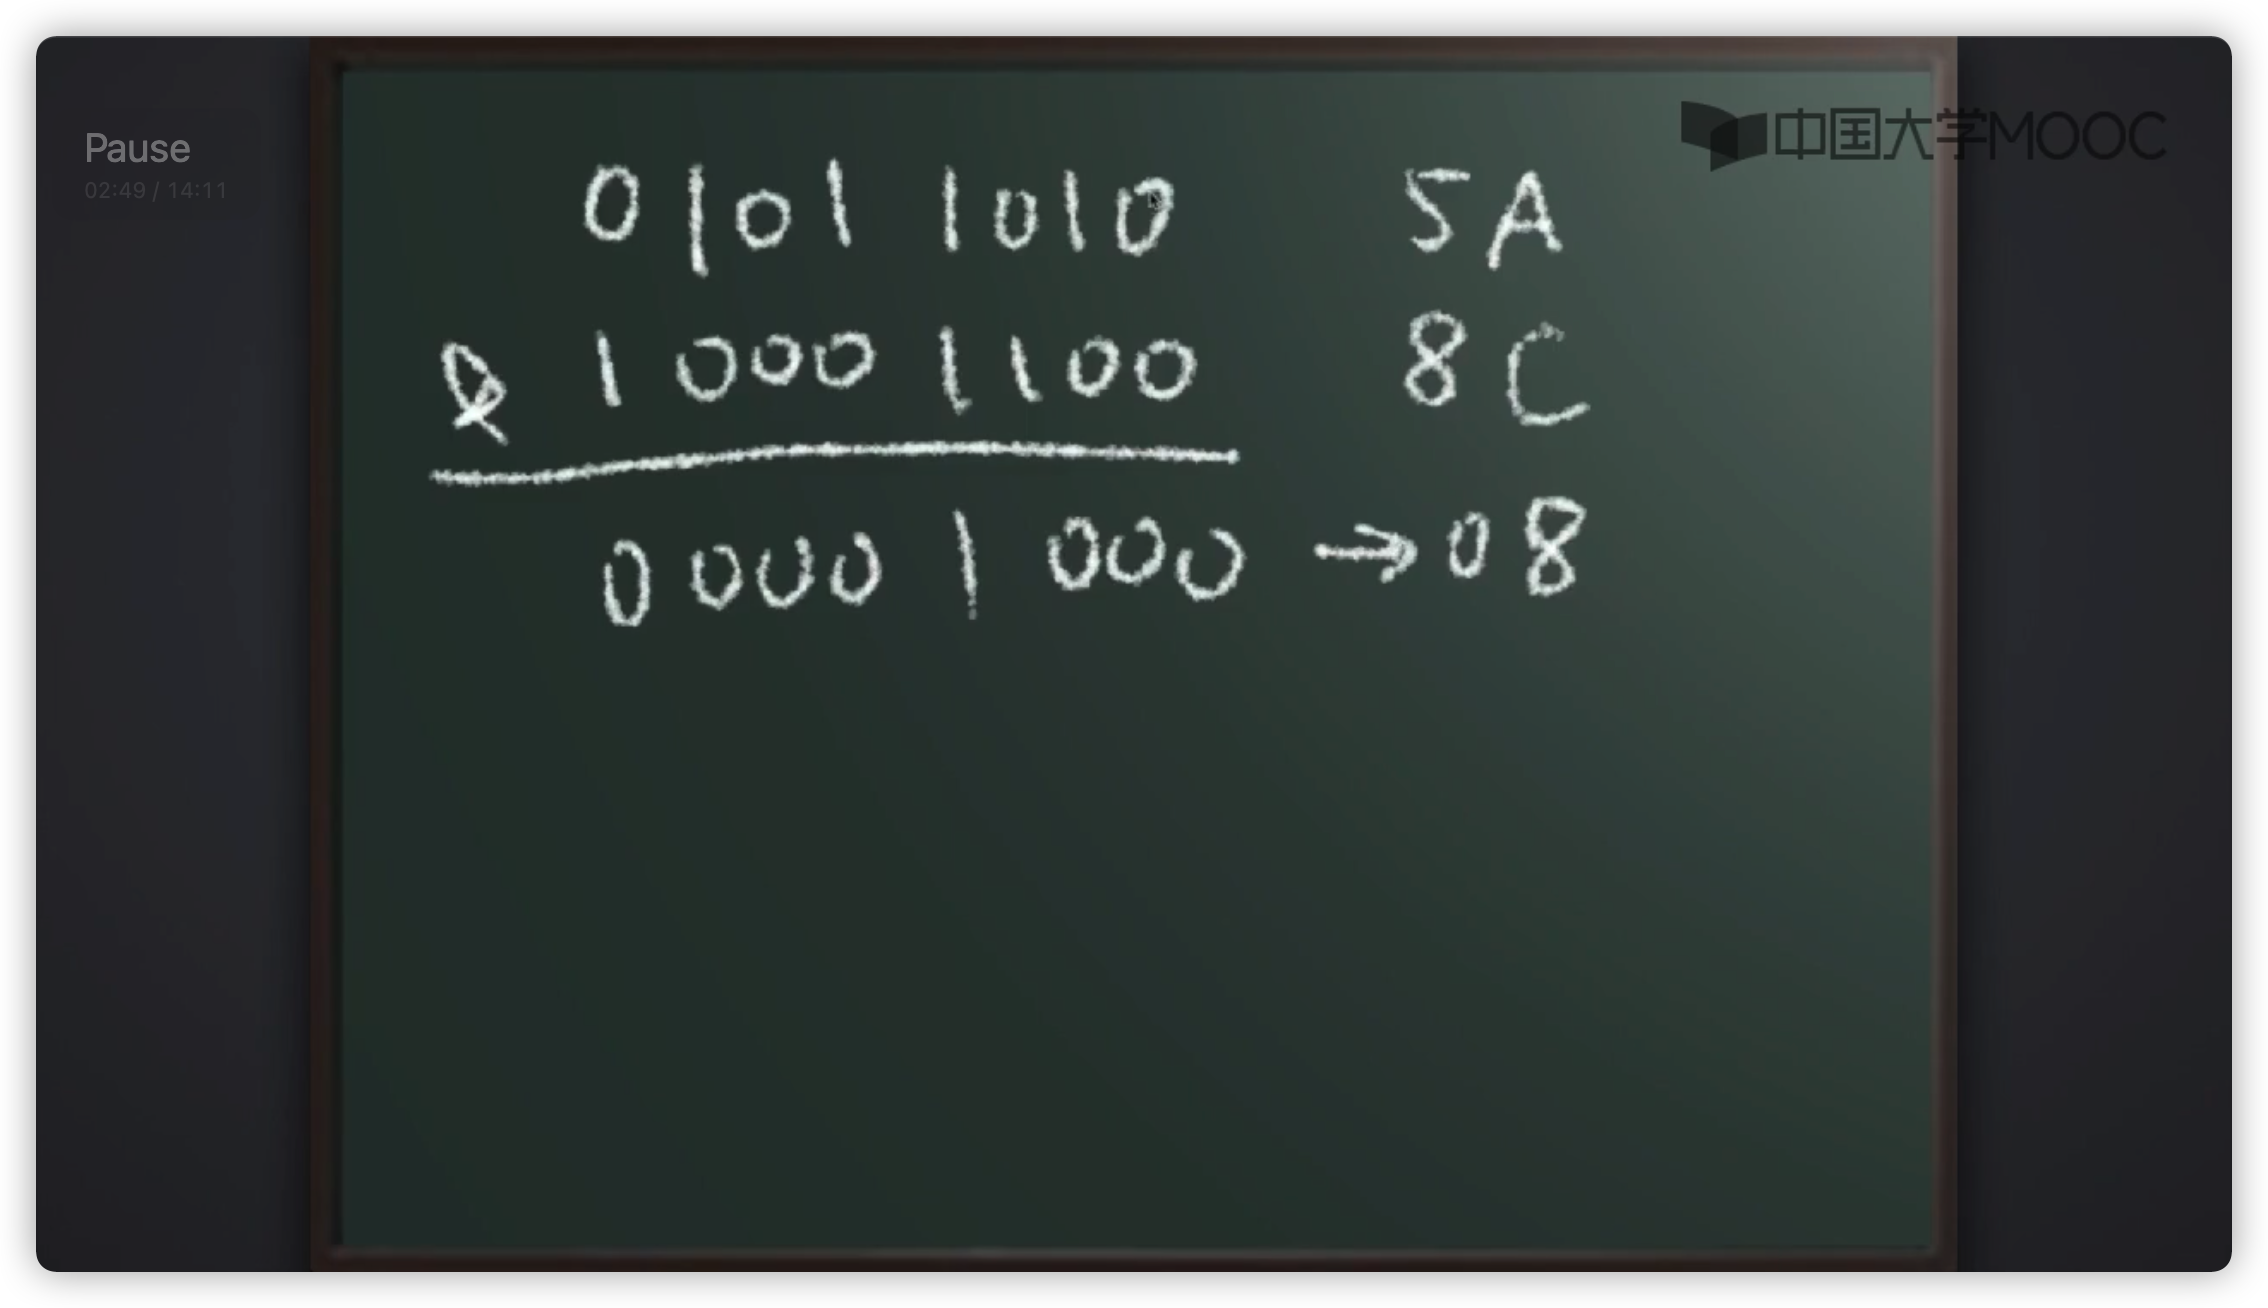 Pause
02:49 / 14:11
中国大学MOOC
0101 1010 5A
& 1000 1100 8C
0000 1000 → 08